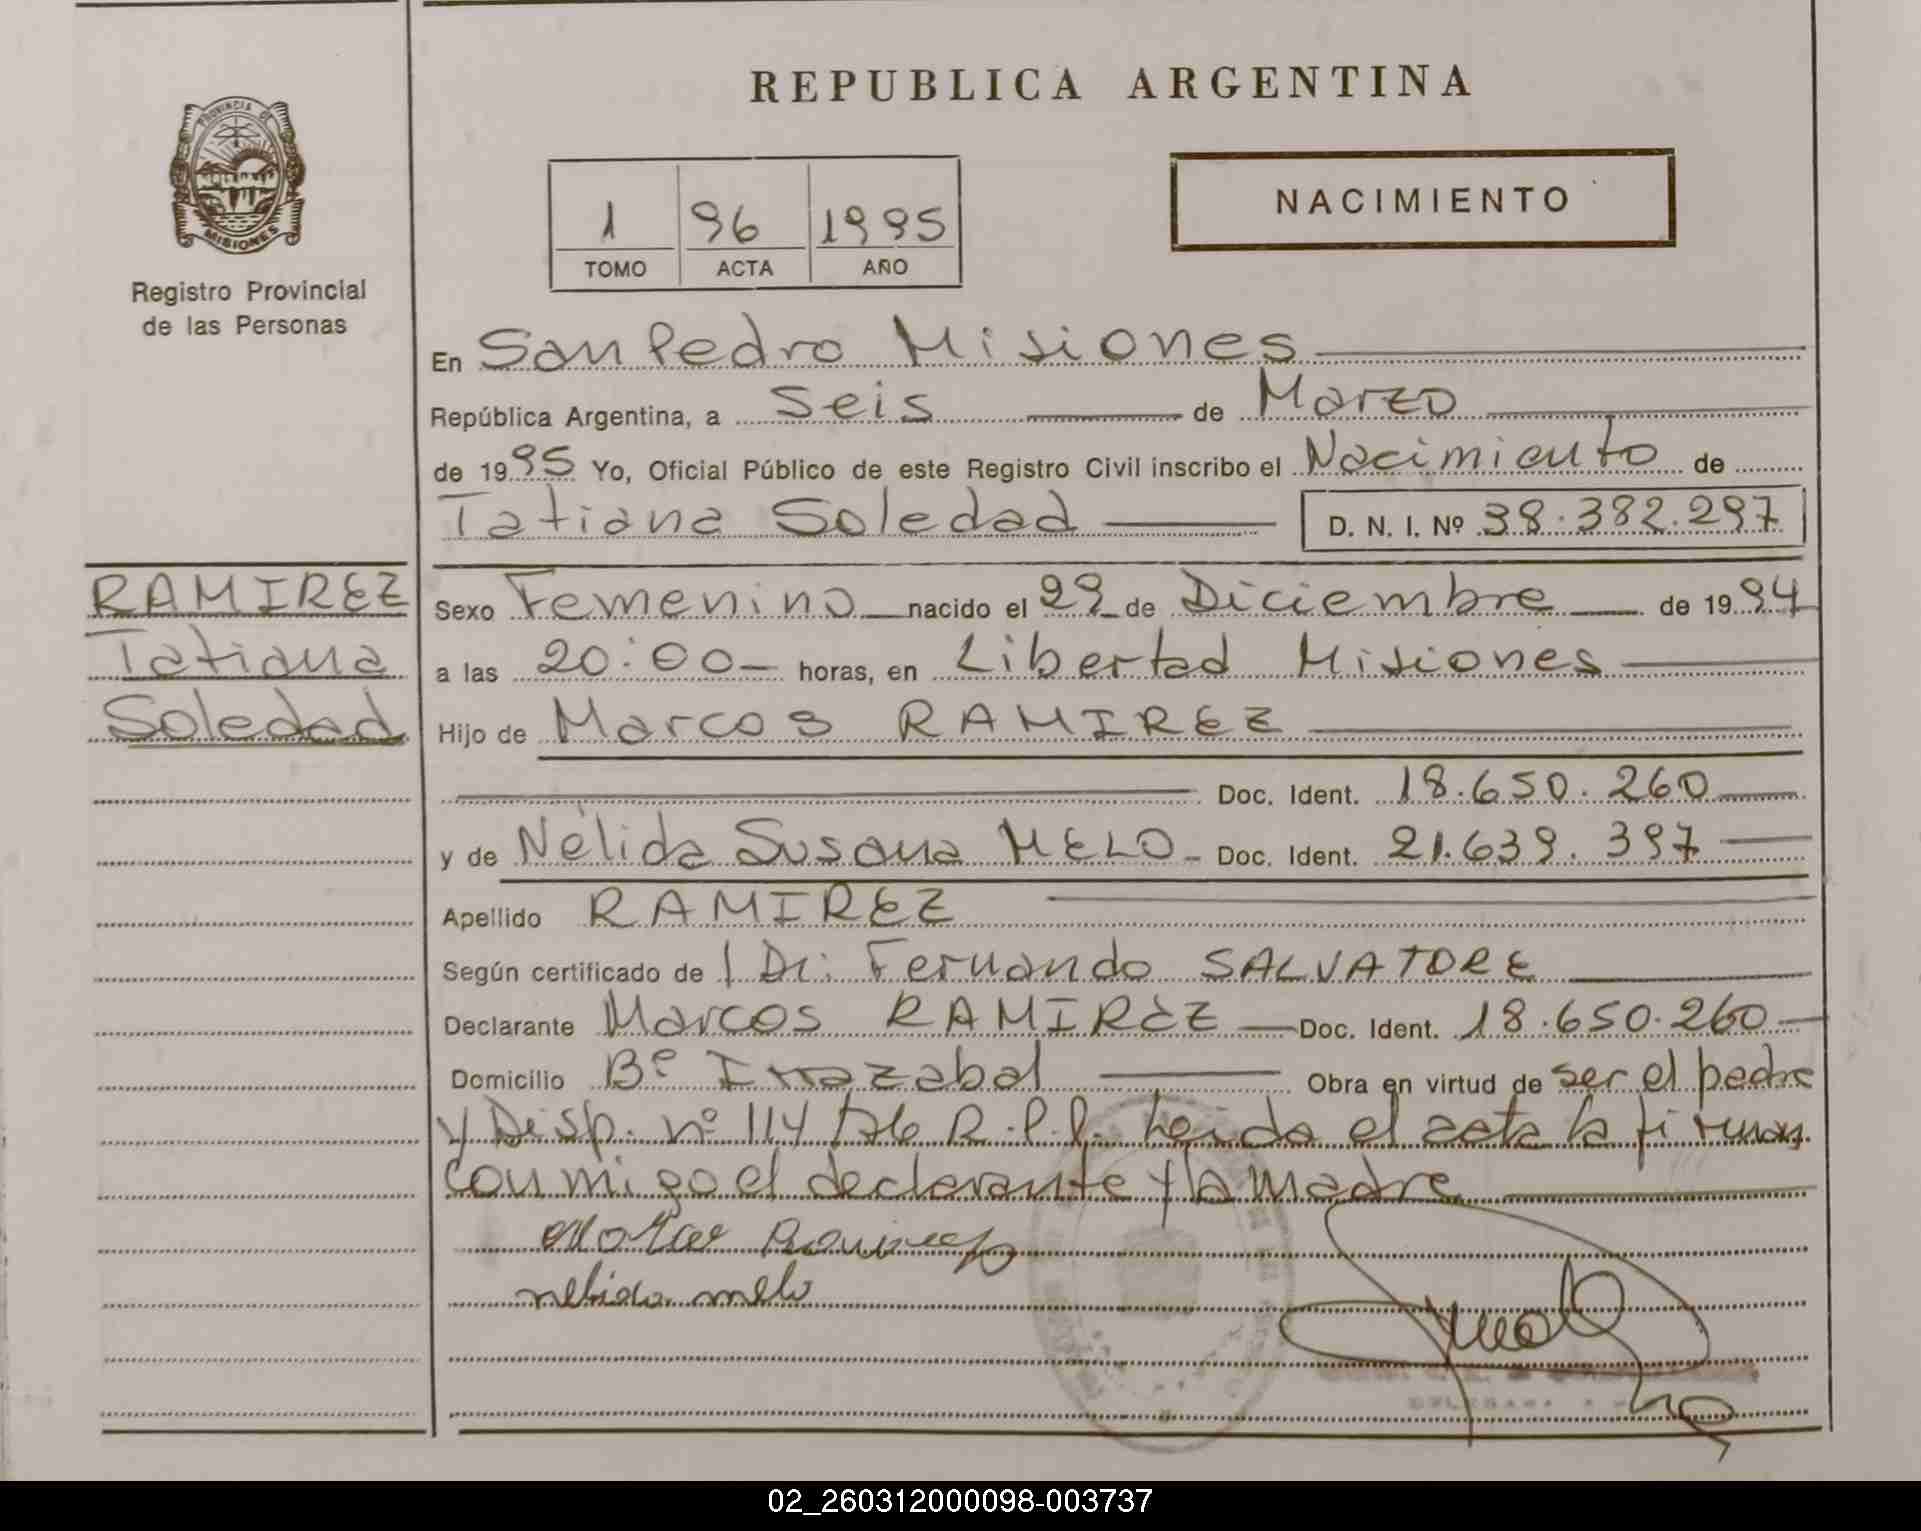 REPUBLICA ARGENTINA
PROVINCIA DE
MISIONES
Registro Provincial
de las Personas
1 96 1995
TOMO ACTA AÑO
NACIMIENTO
En San Pedro Misiones
República Argentina, a Seis de Marzo
de 1995 Yo, Oficial Público de este Registro Civil inscribo el Nacimiento de
Tatiana Soledad D. N. I. Nº 38.382.297
RAMIREZ
Tatiana
Soledad
Sexo Femenino nacido el 29 de Diciembre de 1994
a las 20:00 horas, en Libertad Misiones
Hijo de Marcos RAMIREZ
Doc. Ident. 18.650.260
y de Nélida Susana MELO Doc. Ident. 21.639.397
Apellido RAMIREZ
Según certificado de Dr. Fernando SALVATORE
Declarante Marcos RAMIREZ Doc. Ident. 18.650.260
Domicilio Bº Irrazabal Obra en virtud de ser el padre
y Disp. nº 114/76 R.P.P. Leida el acta la firman
conmigo el declarante y la madre
Ramirez
nelida melo
02_260312000098-003737